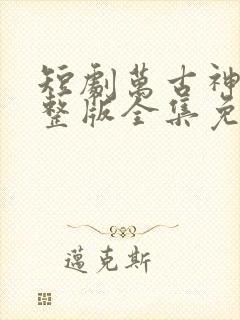 短劇萬古神
整版全集免
邁克斯